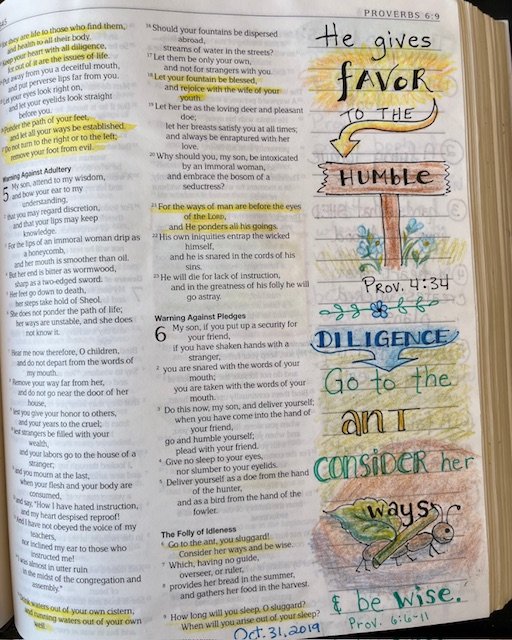 PROVERBS 6:9
they are life to those who find them,
and health to all their body.
keep your heart with all diligence,
for out of it are the issues of life.
Put away from you a deceitful mouth,
and put perverse lips far from you.
your eyes look right on,
and let your eyelids look straight
before you.
Ponder the path of your feet,
and let all your ways be established.
Do not turn to the right or to the left;
remove your foot from evil.
Warning Against Adultery
5 My son, attend to my wisdom,
and bow your ear to my
understanding,
that you may regard discretion,
and that your lips may keep
knowledge.
For the lips of an immoral woman drip as
a honeycomb,
and her mouth is smoother than oil.
But her end is bitter as wormwood,
sharp as a two-edged sword.
Her feet go down to death,
her steps take hold of Sheol.
She does not ponder the path of life;
her ways are unstable, and she does
not know it.
Hear me now therefore, O children,
and do not depart from the words of
my mouth.
Remove your way far from her,
and do not go near the door of her
house,
lest you give your honor to others,
and your years to the cruel;
lest strangers be filled with your
wealth,
and your labors go to the house of a
stranger;
and you mourn at the last,
when your flesh and your body are
consumed,
and say, "How I have hated instruction,
and my heart despised reproof!
And I have not obeyed the voice of my
teachers,
nor inclined my ear to those who
instructed me!
I was almost in utter ruin
in the midst of the congregation and
assembly."
Drink waters out of your own cistern,
and running waters out of your own
well.
16 Should your fountains be dispersed
abroad,
streams of water in the streets?
17 Let them be only your own,
and not for strangers with you.
18 Let your fountain be blessed,
and rejoice with the wife of your
youth.
19 Let her be as the loving deer and pleasant
doe;
let her breasts satisfy you at all times;
and always be enraptured with her
love.
20 Why should you, my son, be intoxicated
by an immoral woman,
and embrace the bosom of a
seductress?
21 For the ways of man are before the eyes
of the LORD,
and He ponders all his goings.
22 His own iniquities entrap the wicked
himself,
and he is snared in the cords of his
sins.
23 He will die for lack of instruction,
and in the greatness of his folly he will
go astray.
Warning Against Pledges
6 My son, if you put up a security for
your friend,
if you have shaken hands with a
stranger,
2 you are snared with the words of your
mouth;
you are taken with the words of your
mouth.
3 Do this now, my son, and deliver yourself;
when you have come into the hand of
your friend,
go and humble yourself;
plead with your friend.
4 Give no sleep to your eyes,
nor slumber to your eyelids.
5 Deliver yourself as a doe from the hand
of the hunter,
and as a bird from the hand of the
fowler.
The Folly of Idleness
6 Go to the ant, you sluggard!
Consider her ways and be wise.
7 Which, having no guide,
overseer, or ruler,
8 provides her bread in the summer,
and gathers her food in the harvest.
9 How long will you sleep, O sluggard?
When will you arise out of your sleep?
Oct. 31, 2019
He gives
FAVOR
TO THE
HUMBLE
PROV. 4:34
DILIGENCE
Go to the
ANT
CONSIDER her
ways
& be wise.
Prov. 6:6-11